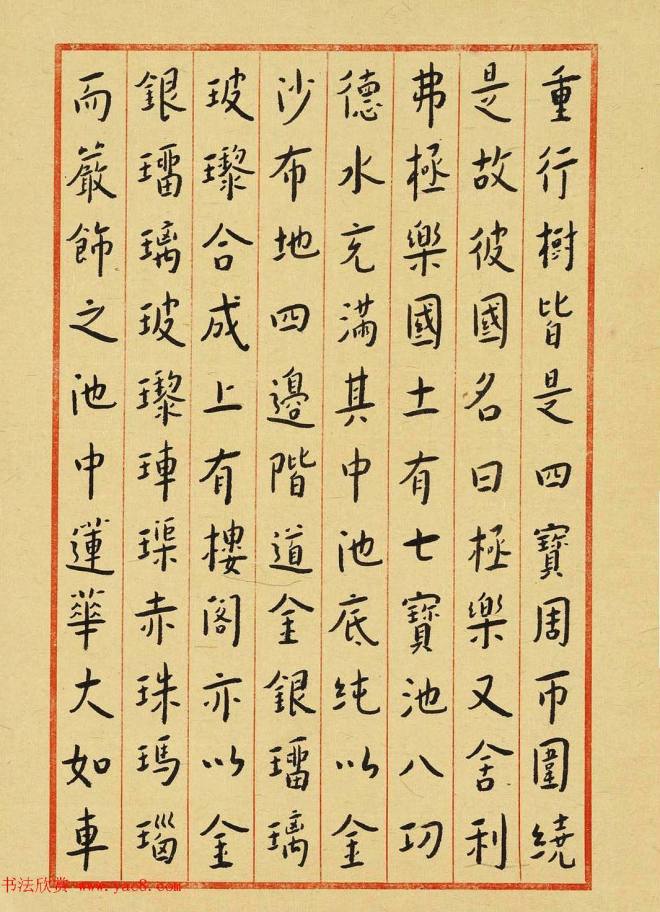 重行樹皆是四寶周帀圍繞
是故彼國名曰極樂又舍利
弗極樂國土有七寶池八功
德水充滿其中池底純以金
沙布地四邊階道金銀瑠璃
玻瓈合成上有樓閣亦以金
銀瑠璃玻瓈硨磲赤珠瑪瑙
而嚴飾之池中蓮華大如車
书法欣赏 www.yac8.com